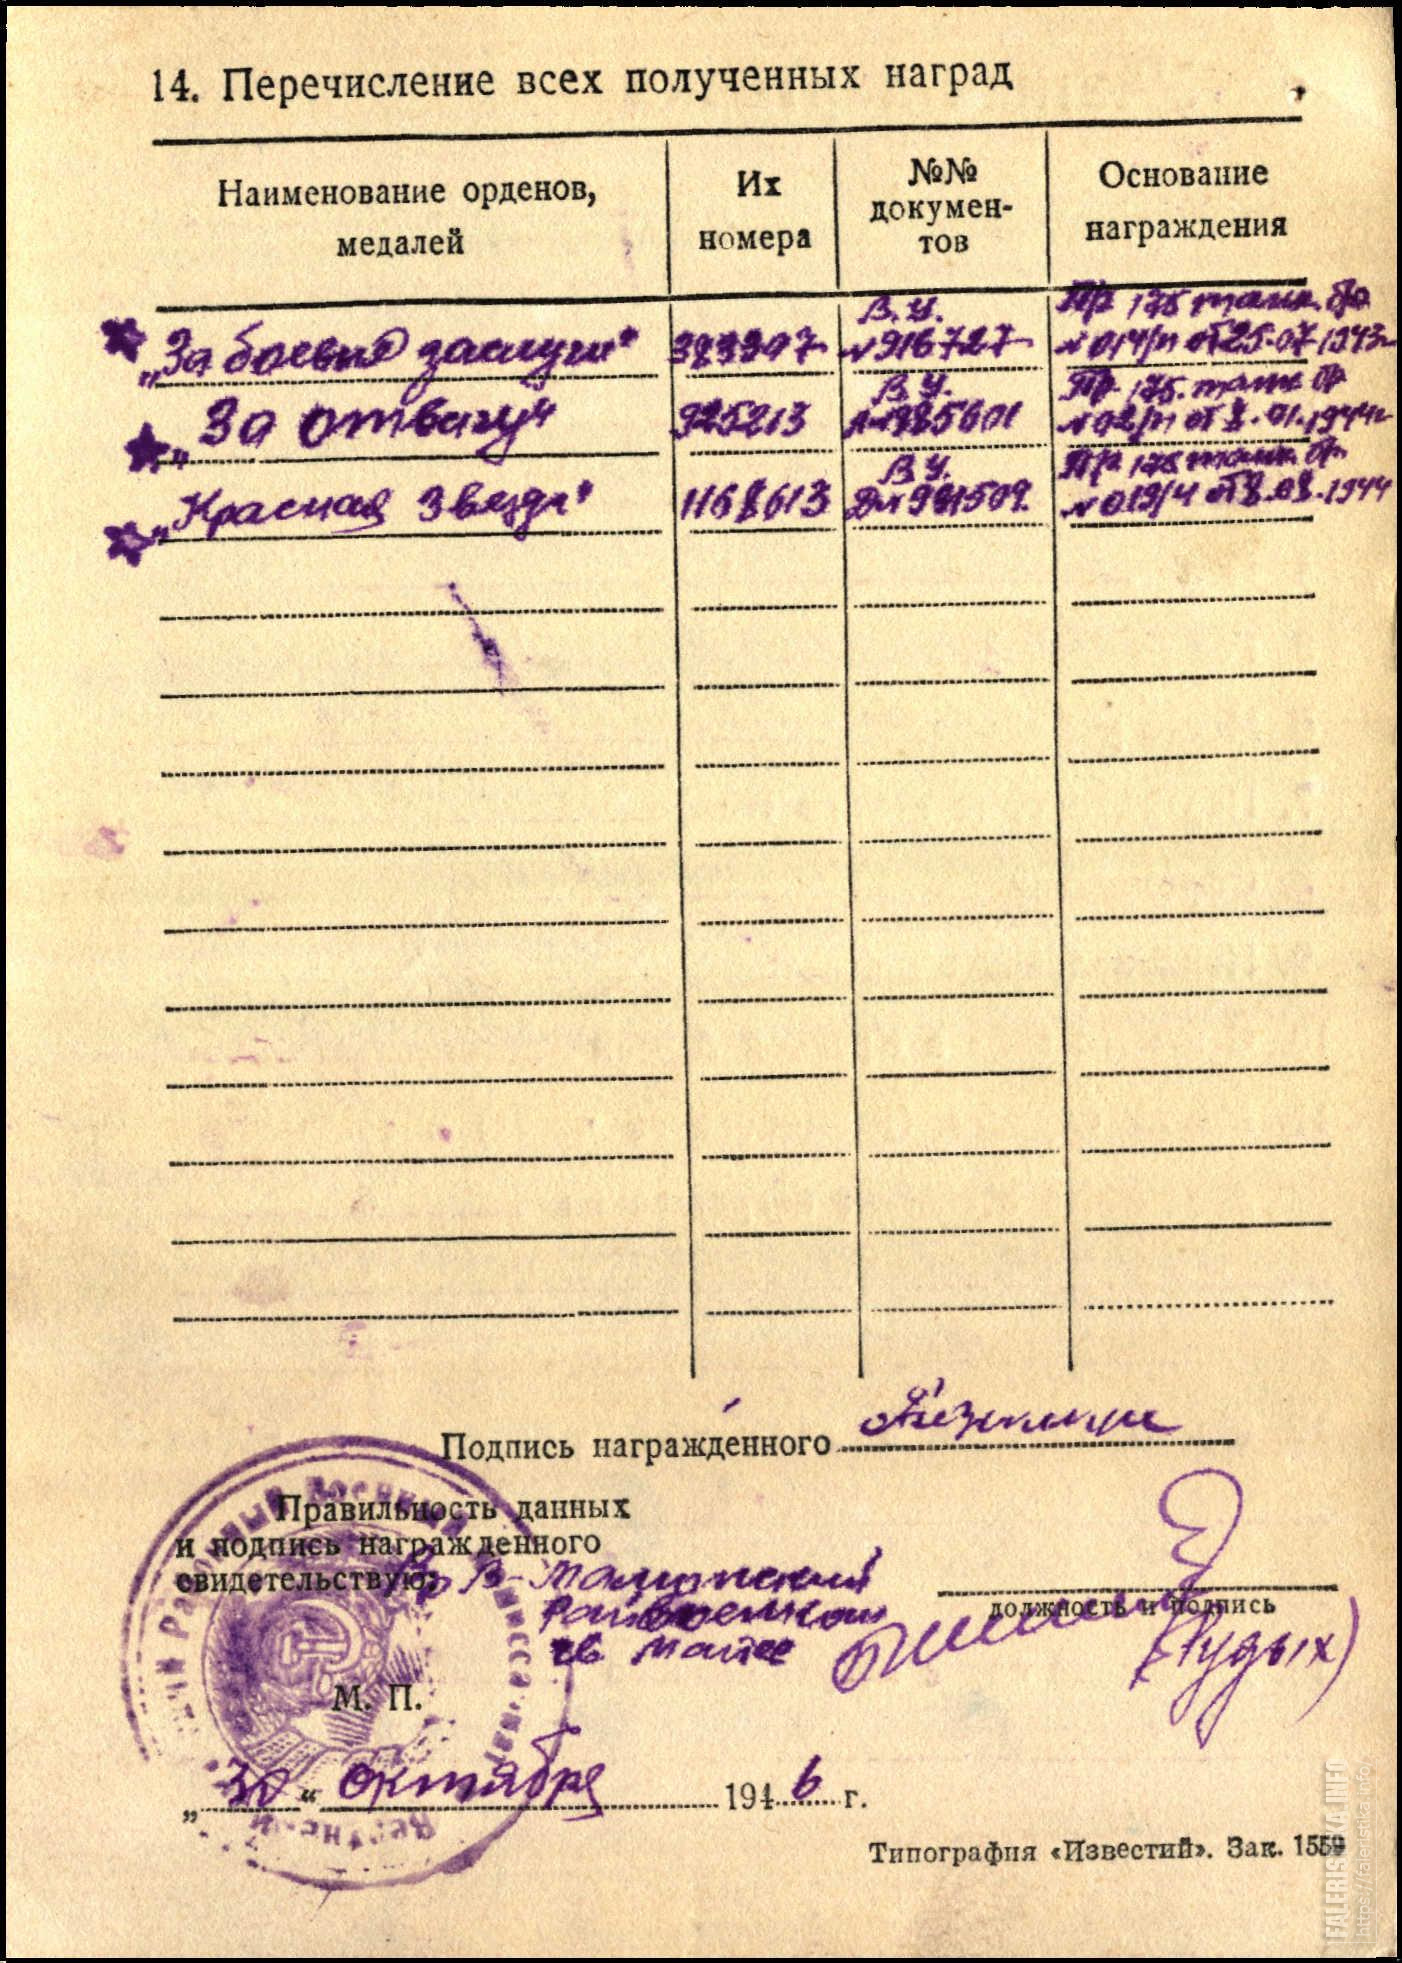 14. Перечисление всех полученных наград
Наименование орденов,
медалей
Их
номера
№№
докумен-
тов
Основание
награждения
„За боевые заслуги"
В. У.
№ 916727
Пр 175 танк. бр
№ 014/н от 25.07 1943г
„За отвагу"
925213
В У.
Пр. 175. танк бр
№ 02/н от 8.01.1944г
„Красная Звезда"
1168613
В У.
Пр 175 танк. бр.
№ 019/н от 8.08.1944
Подпись награжденного
Правильность данных
и подпись награжденного
свидетельствую:
Райвоенком
гв майор
должность и подпись
(Пудых)
М. П.
„30“ октября 1946 г.
Типография «Известий». Зак. 1559
FALERISTIKA.INFO
https://faleristika.info